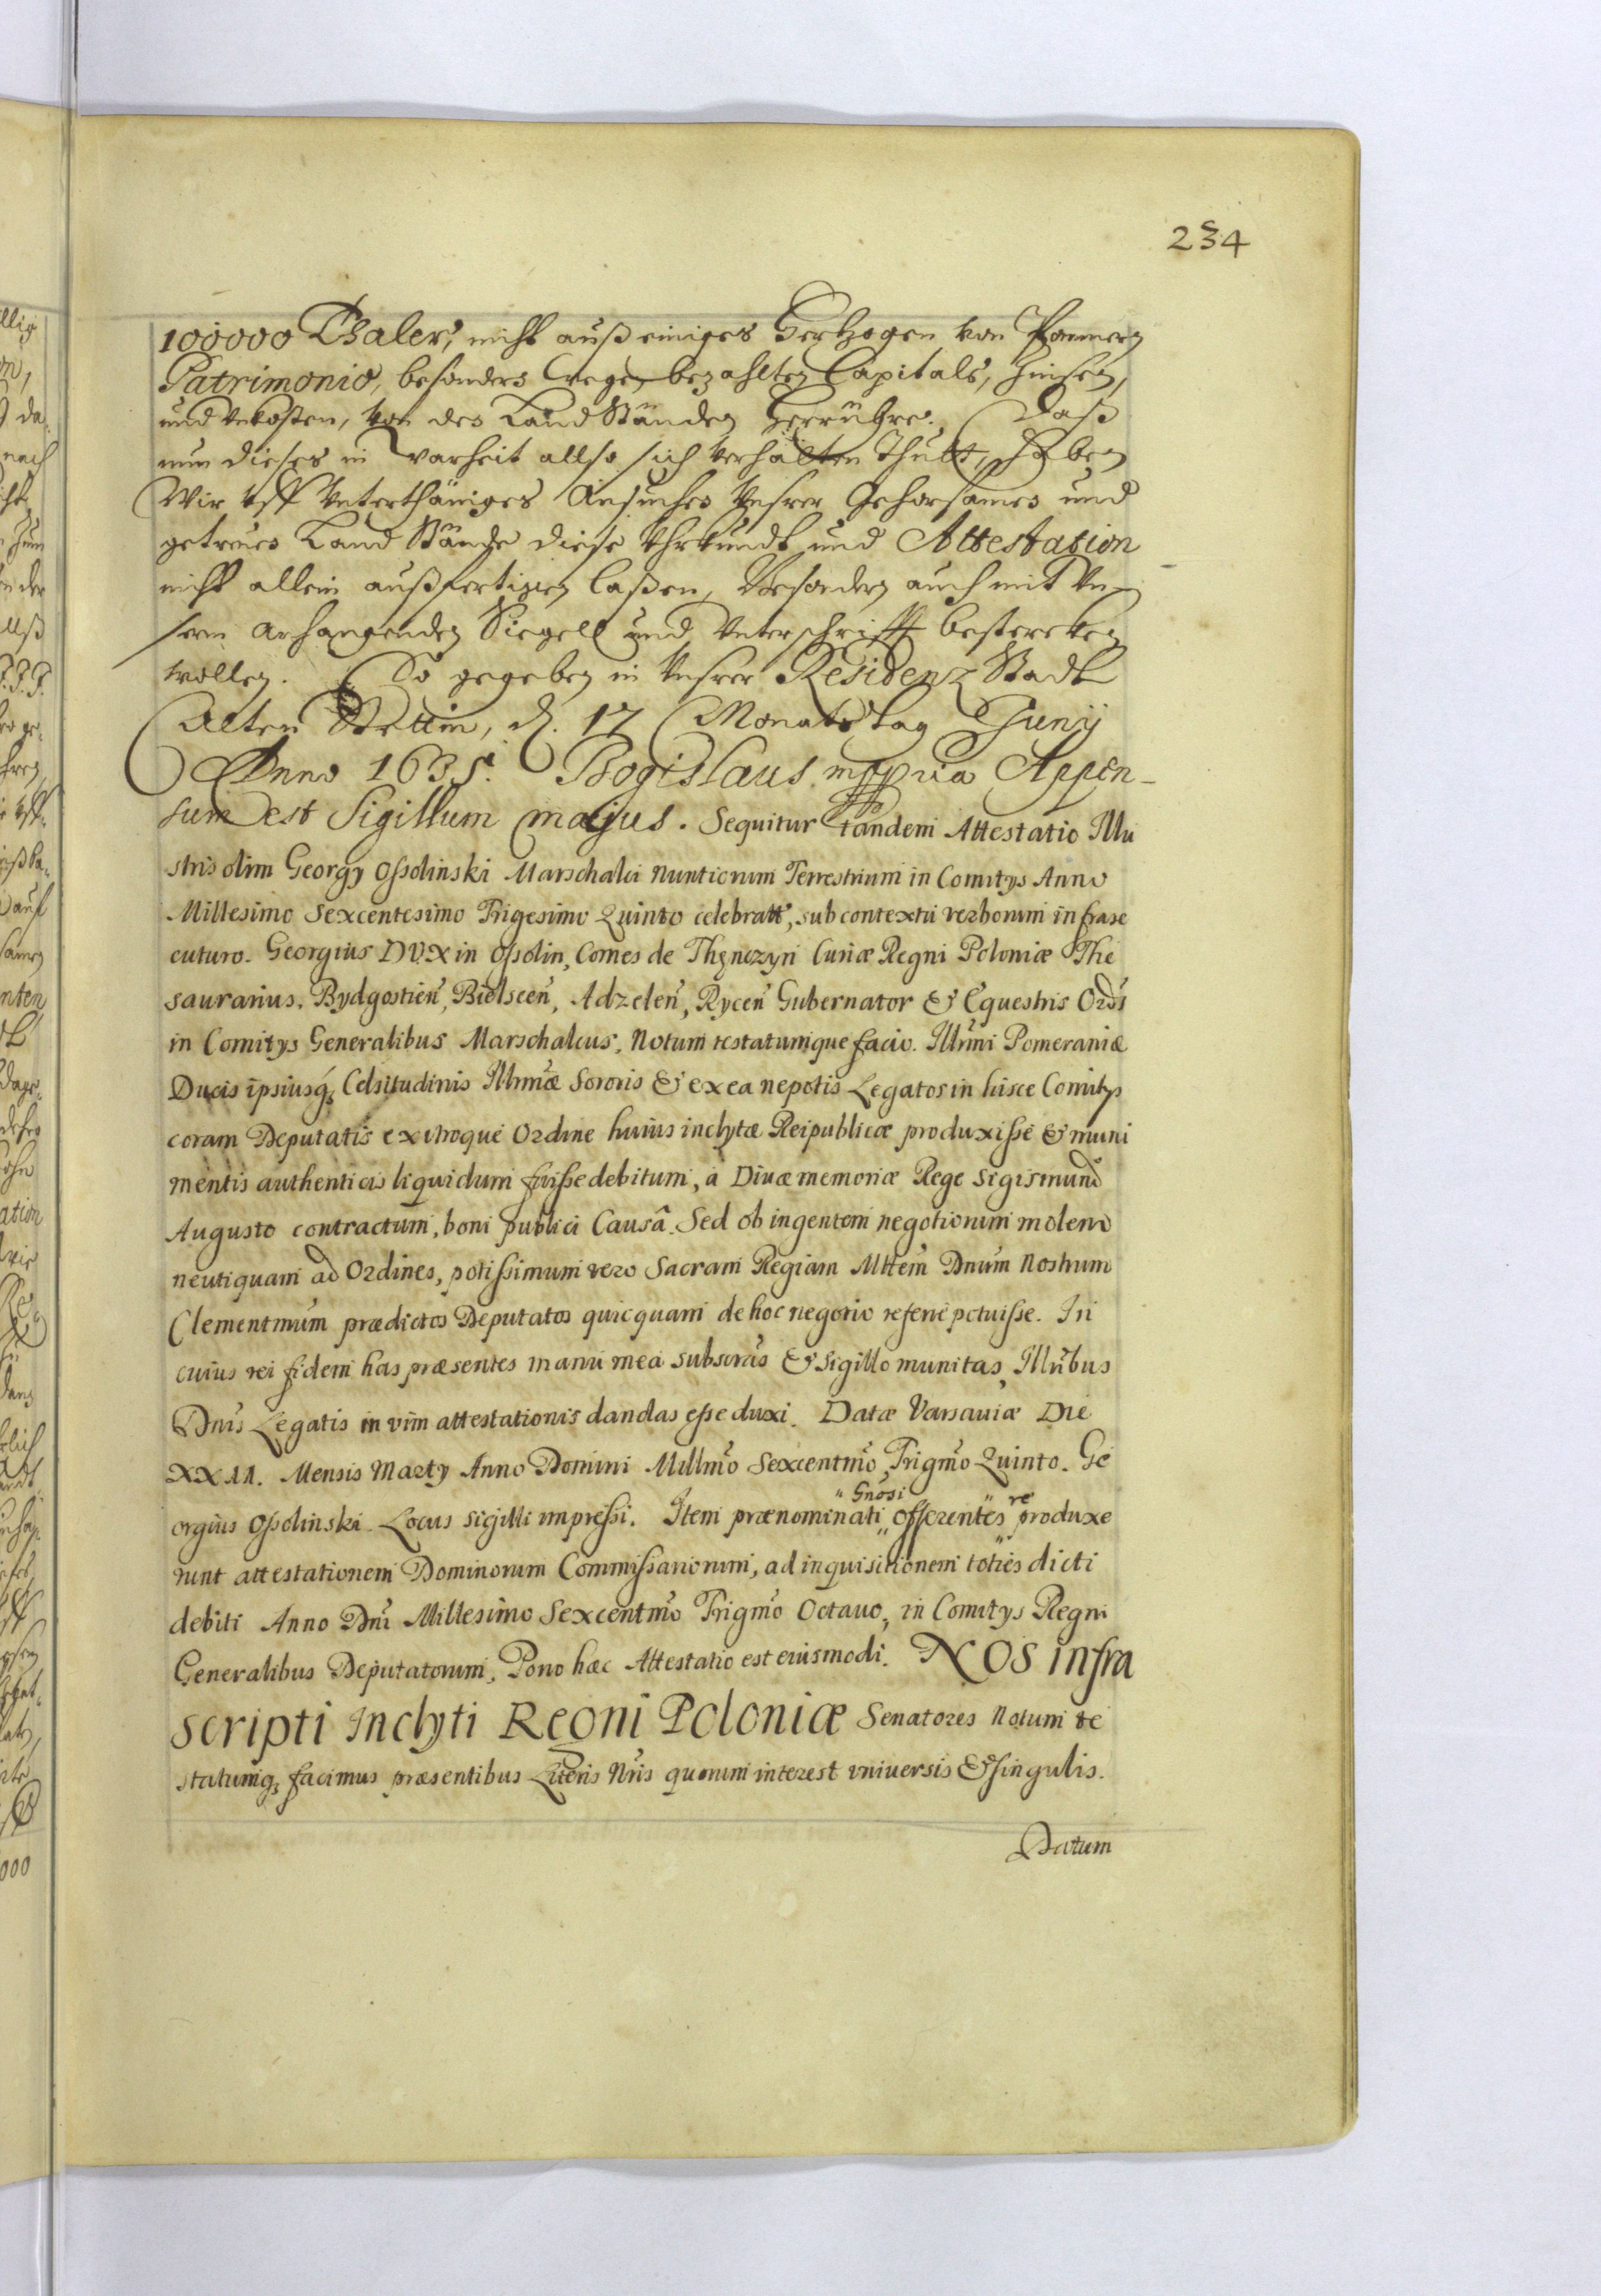 234
100000 Thaler, nicht auß einiges Hertzogen von Pommern
Patrimonio, besonders wegen bezahlten Capitals, Zinsen,
und Unkosten, von den Land Ständen herrühre. Daß
nun dieses in warheit allso sich verhalten Thutt, haben
Wir uff Unterthäniges Ansuchen Unsrer Gehorsamen und
getreuen Land Stände diese Uhrkundt und Attestation
nicht allein außfertigen laßen, besondern auch mit Un-
serm anhangenden Siegell und Unterschrifft bestercken
wollen. So gegeben in Unsrer Residenz Stadt
Alten Stettin, d. 17 Monats tag Junij
Anno 1635. Bogislaus mppria Appen-
sum est Sigillum majus. Sequitur tandem Attestatio Illu
stris olim Georgy Ossolinski Marschalci Nuntiorum Terrestrium in Comitys Anno
Millesimo Sexcentesimo Trigesimo Quinto celebratt, sub contextu verborum infrase
cuturo. Georgius DUX in Ossolin, Comes de Thęnczyn Curiæ Regni Poloniæ The
saurarius, Bydgostien, Bielscen, Adzelen, Rycen Gubernator & Equestris Ordis
in Comitys Generalibus Marschalcus, Notum testatumque facio. Illmi Pomeraniæ
Ducis ipsiusq; Celsitudinis Illmæ Sororis & ex ea nepotis Legatos in hisce Comitys
coram Deputatis ex utroque Ordine huius inclytæ Reipublicæ produxisse & muni
mentis authenticis liquidum fuisse debitum, a Divæ memoriæ Rege Sigismund
Augusto contractum, boni publici Causâ. Sed ob ingentem negotiorum molem
neutiquam ad Ordines, potissimum vero Sacram Regiam Mttem Dnum Nostrum
Clementmum prædictos Deputatos quicquam de hoc negotio referre potuisse. In
cuius rei fidem has præsentes manu mea subscras & sigillo munitas, Illribus
Dnis Legatis in vim attestationis dandas esse duxi. Datæ Varsaviæ Die
XXII. Mensis Marty Anno Domini Millmo Sexcentmo Trigmo Quinto. Ge
orgius Ossolinski. Locus sigilli impressi. Item prænominati " Gnosi " offerentes " re produxe
runt attestationem Dominorum Commissariorum, ad inquisitionem toties dicti
debiti Anno Dni Millesimo Sexcentmo Trigmo Octavo, in Comitys Regni
Generalibus Deputatorum, Porro hæc Attestatio est eiusmodi. NOS infra
scripti Inclyti Regni Poloniæ Senatores Notum te
statumq; facimus præsentibus Literis Nris quorum interest universis & singulis.
Datum